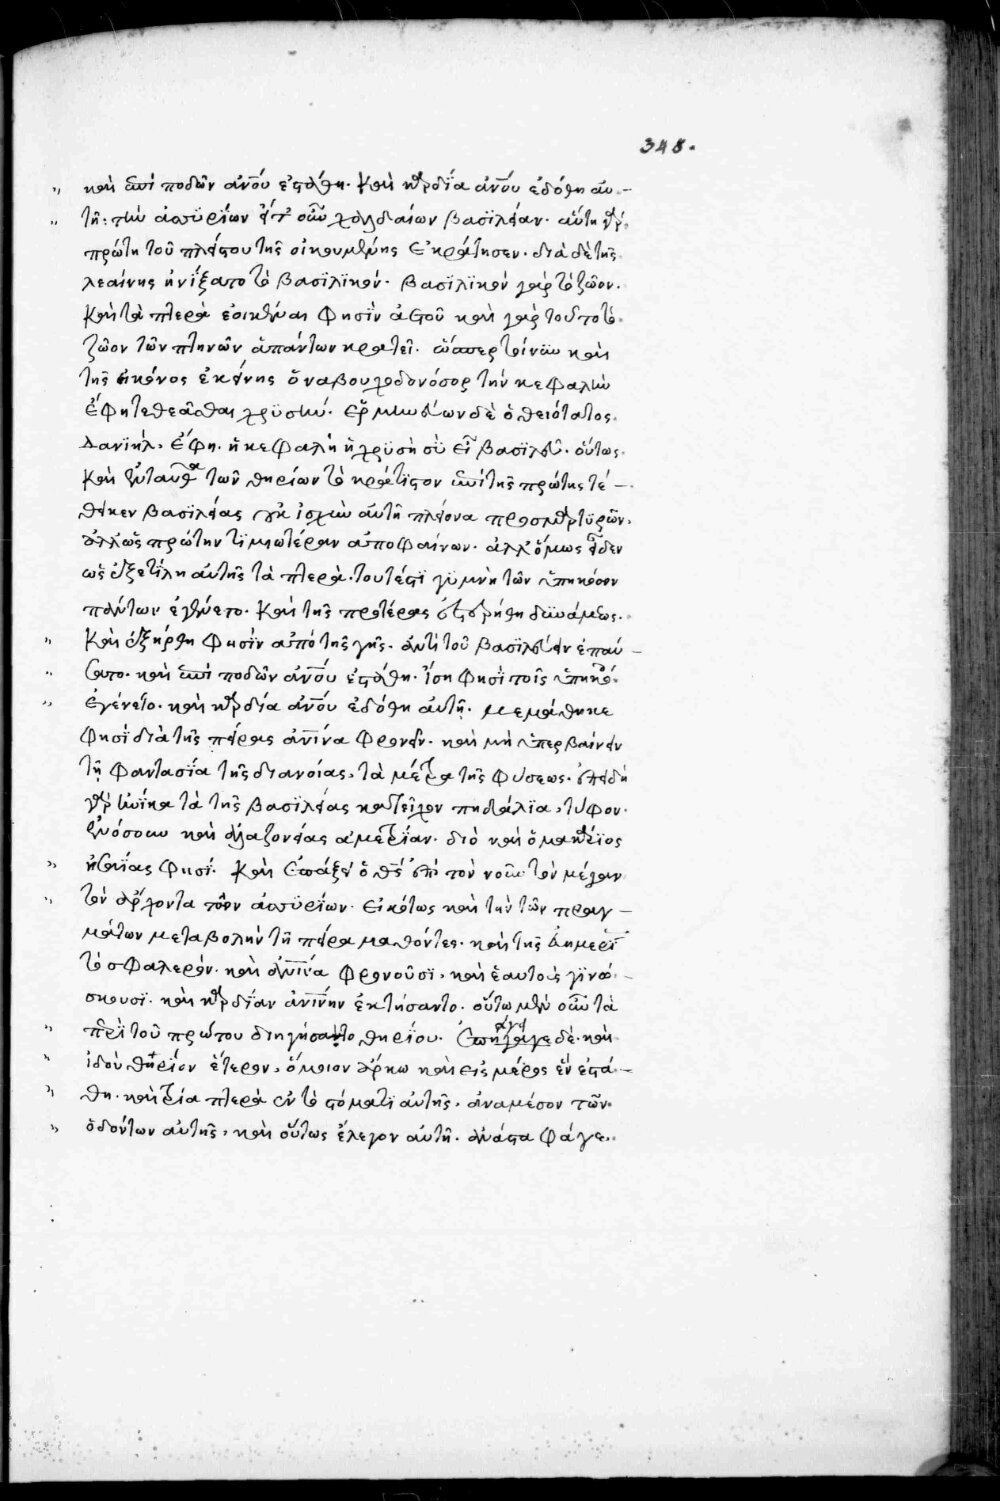 348.
καὶ ἐπὶ ποδῶν ἀν̅ο̅υ ἐστάθη. καὶ καρδία ἀν̅ο̅υ ἐδόθη αὐ-
τῆ: τὴν ἀσσυρίων εἴτ' οὖν χαλδαίων βασιλείαν. αὕτη γὰρ
πρώτη τοῦ πλείστου τῆς οἰκουμένης ἐκράτησεν. διὰ δὲ τῆς
λεαίνης ἠνίξατο τὸ βασιλικόν. βασιλικὸν γὰρ τὸ ζῶον.
καὶ τὰ πτερὰ ἐοικέναι φησὶν ἀετοῦ καὶ γὰρ τοῦτο τὸ
ζῶον τῶν πτηνῶν ἁπάντων κρατεῖ. ὥσπερ τοίνυν καὶ
τῆς εἰκόνος ἐκείνης ὁ ναβουχοδονόσορ τὴν κεφαλὴν
ἔφη τεθεᾶσθαι χρυσῆν. ἑρμηνεύων δὲ ὁ θειότατος
Δανιήλ. ἔφη. ἡ κεφαλὴ ἡ χρυσῆ σὺ εἶ βασιλεῦ. οὕτως
καὶ ἐνταῦθα τῶν θηρίων τὸ κράτιστον ἐπὶ τῆς πρώτης τέ-
θεικεν βασιλείας οὐκ ἰσχὺν αὐτῆ πλείονα προσμαρτυρῶν.
ἀλλ' ὡς πρώτην τιμιωτέραν ἀποφαίνων. ἀλλ' ὅμως εἶδεν
ὡς ἐξετίλη αὐτῆς τὰ πτερά. τουτέστι γυμνὴ τῶν ὑπηκόων
πάντων ἐγένετο. καὶ τῆς προτέρας ἐστερήθη δυνάμεως.
καὶ ἐξήρθη φησὶν ἀπὸ τῆς γῆς. ἀντὶ τοῦ βασιλεύειν ἐπαύ-
σατο. καὶ ἐπὶ ποδῶν ἀν̅ο̅υ ἐστάθη. ἴση φησὶ τοῖς ὑπηκό.
ἐγένετο. καὶ καρδία ἀν̅ο̅υ ἐδόθη αὐτῆ. μεμάθηκε
φησὶ διὰ τῆς πείρας ἀν̅ι̅να φρονεῖν. καὶ μὴ ὑπερβαίνειν
τῆ φαντασία τῆς διανοίας, τὰ μέτρα τῆς φύσεως. ἐπειδὴ
γὰρ ἡνίκα τὰ τῆς βασιλείας κατεῖχον πηδάλια, τύφον.
ἐνόσουν καὶ ἀλαζονείας ἀμετρίαν. διὸ καὶ ὁ μακάριος
ἡσαΐας φησί. καὶ ἐπάξει ὁ θ̅ς̅ ἐπὶ τὸν νοῦν τὸν μέγαν
τὸν ἄρχοντα τῶν ἀσσυρίων. εἰκότως καὶ τὴν τῶν πραγ-
μάτων μεταβολὴν τῆ πείρα μαθόντες. καὶ τῆς εὐημερί
τὸ σφαλερόν. καὶ ἀν̅ι̅να φρονοῦσι, καὶ ἑαυτοὺς γινώ-
σκουσι. καὶ καρδίαν ἀν̅ι̅νην ἐκτήσαντο. οὕτω μὲν οὖν τὰ
περὶ τοῦ πρώτου διηγήσατο θηρίου. ἐπήγαγε δὲ. καὶ
ἰδοὺ θηρίον ἕτερον, ὅμοιον ἄρκω καὶ εἰς μέρος ἓν ἐστά-
θη. καὶ τρία πτερὰ ἐν τῶ στόματι αὐτῆς, ἀναμέσον τῶν
ὀδόντων αὐτῆς, καὶ οὕτως ἔλεγον αὐτῆ. ἀνάστα φάγε.